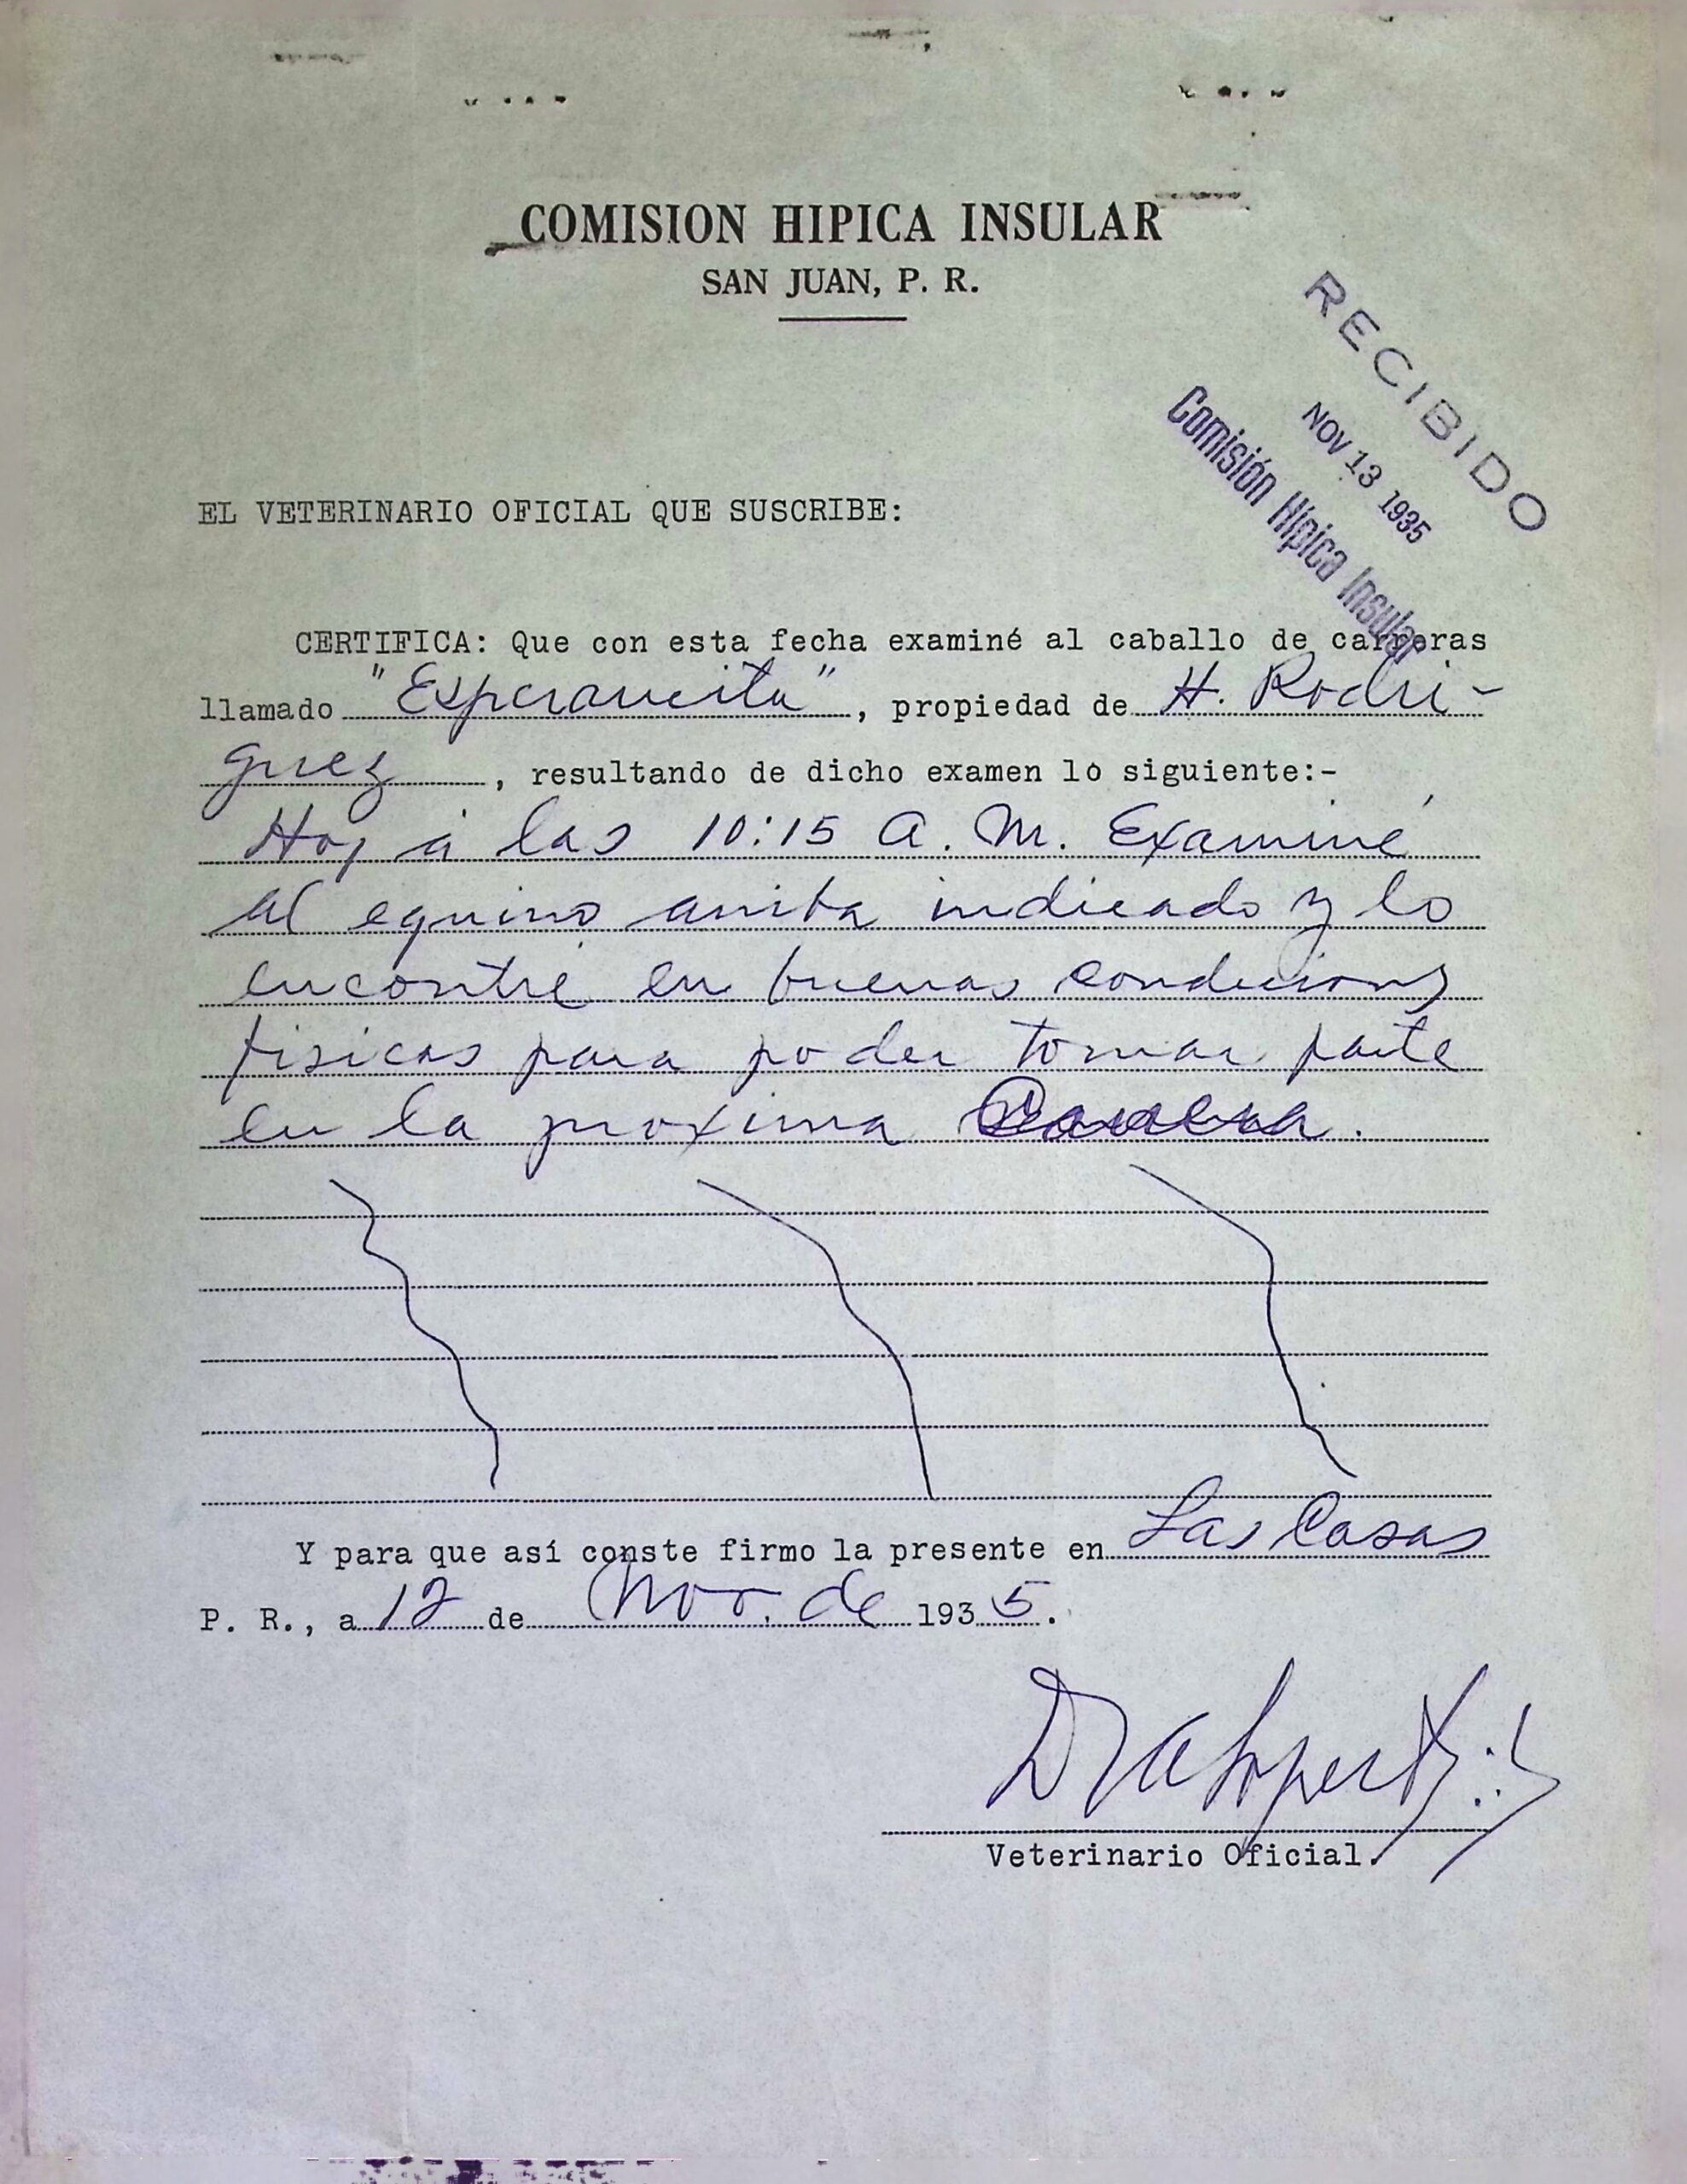 COMISION HIPICA INSULAR
SAN JUAN, P. R.
RECIBIDO
NOV 13 1935
Comisión Hípica Insular
EL VETERINARIO OFICIAL QUE SUSCRIBE:
CERTIFICA: Que con esta fecha examiné al caballo de carreras
llamado "Esperancita", propiedad de H. Rodri-
guez, resultando de dicho examen lo siguiente:-
Hoy a las 10:15 A. M. Examiné
al equino arriba indicado y lo
encontré en buenas condiciones
fisicas para poder tomar parte
en la proxima Carrera.
Y para que así conste firmo la presente en Las Casas
P. R., a 12 de Nov. de 1935.
Veterinario Oficial.